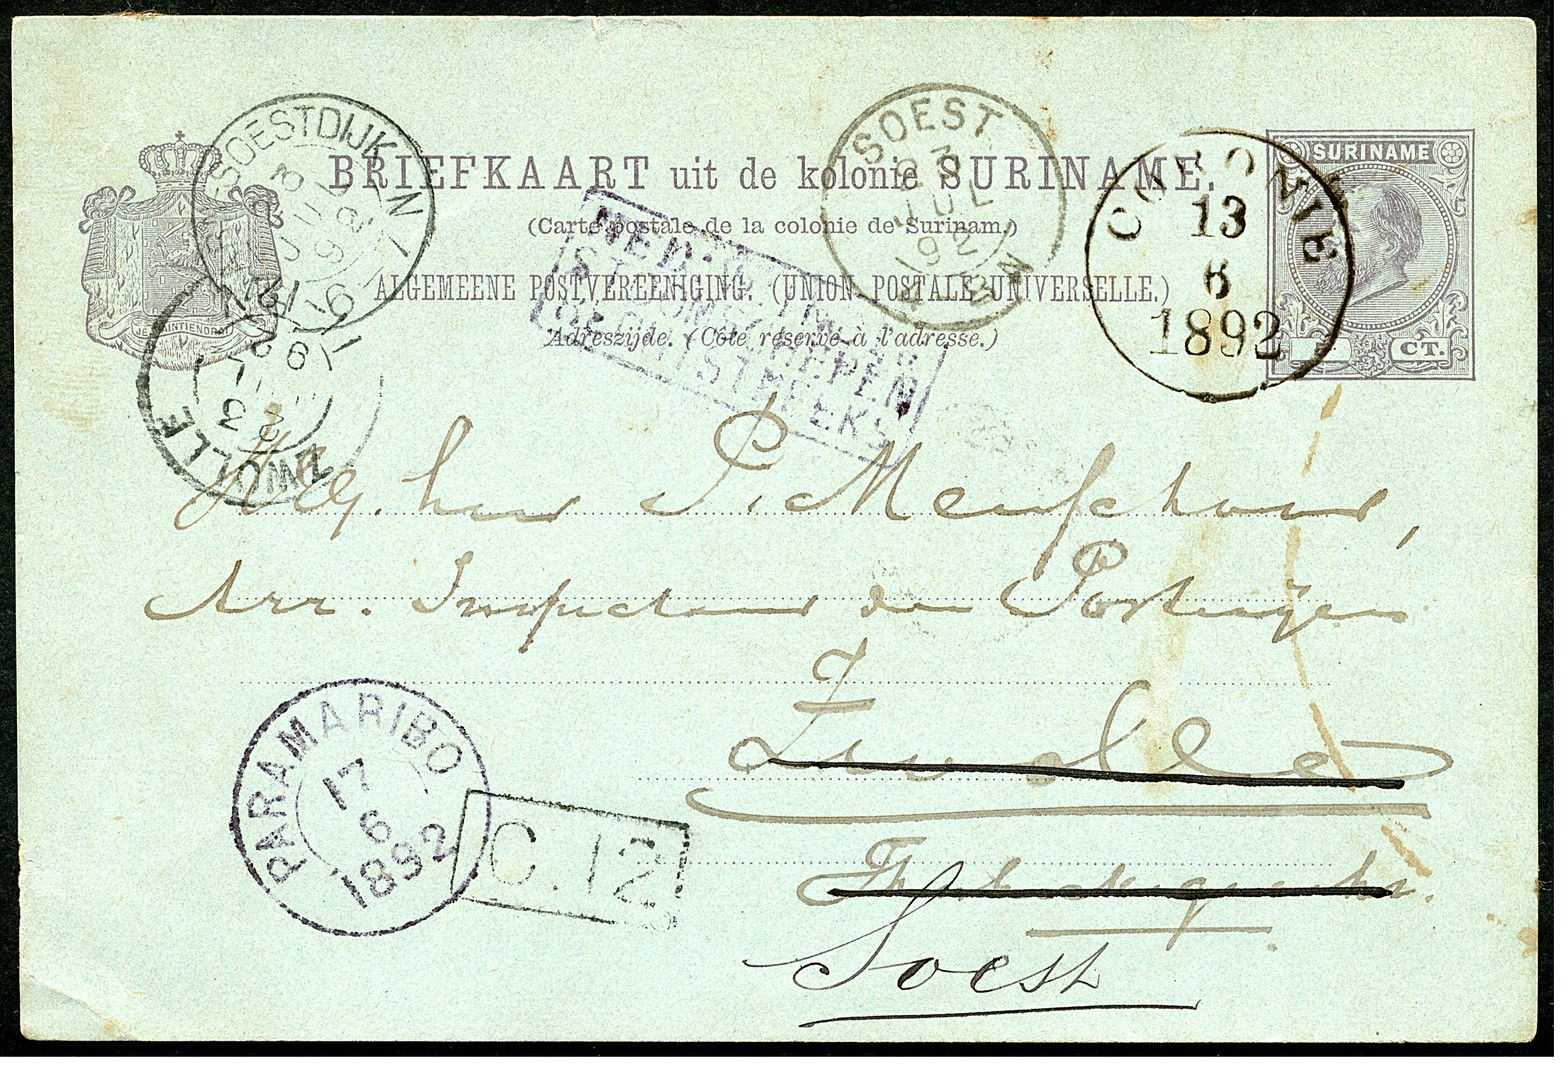 BRIEFKAART uit de kolonie SURINAME.
(Carte postale de la colonie de Surinam.)
ALGEMEENE POSTVEREENIGING. (UNION POSTALE UNIVERSELLE.)
Adreszijde. (Côté réservé à l'adresse.)
SURINAME
CT.
JE MAINTIENDRAI
SOESTDIJK
ZWOLLE
SOEST
JUL
92
CORONIE
13
6
1892
NED. W. INDIE
Heer P.
Arr. Inspecteur der Posterijen
Zwolle
Soest
PARAMARIBO
17
6
1892
C. 12